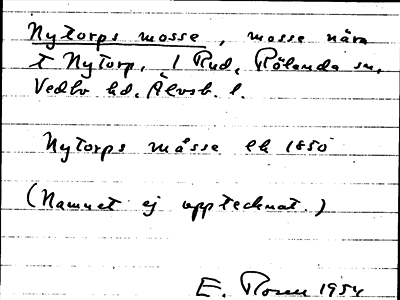 Nytorps mosse, mosse nära
t Nytorp, 1 Rud, Rölanda sn,
Vedbo hd. Älvsb. l.
Nytorps måsse ek 1850
(Namnet ej upptecknat.)
E. Rosen 1954